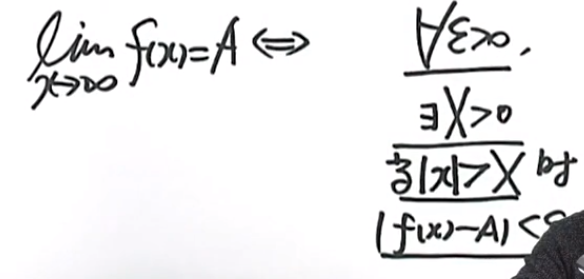 lim f(x)=A ⇔ ∀ε>0,
x→∞
∃X>0
当|x|>X 时
|f(x)-A|<